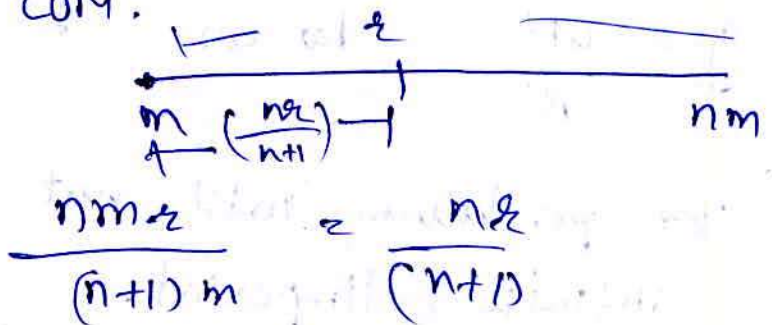 COM.
r
m (nr/n+1) nm
nmr/(n+1)m = nr/(n+1)